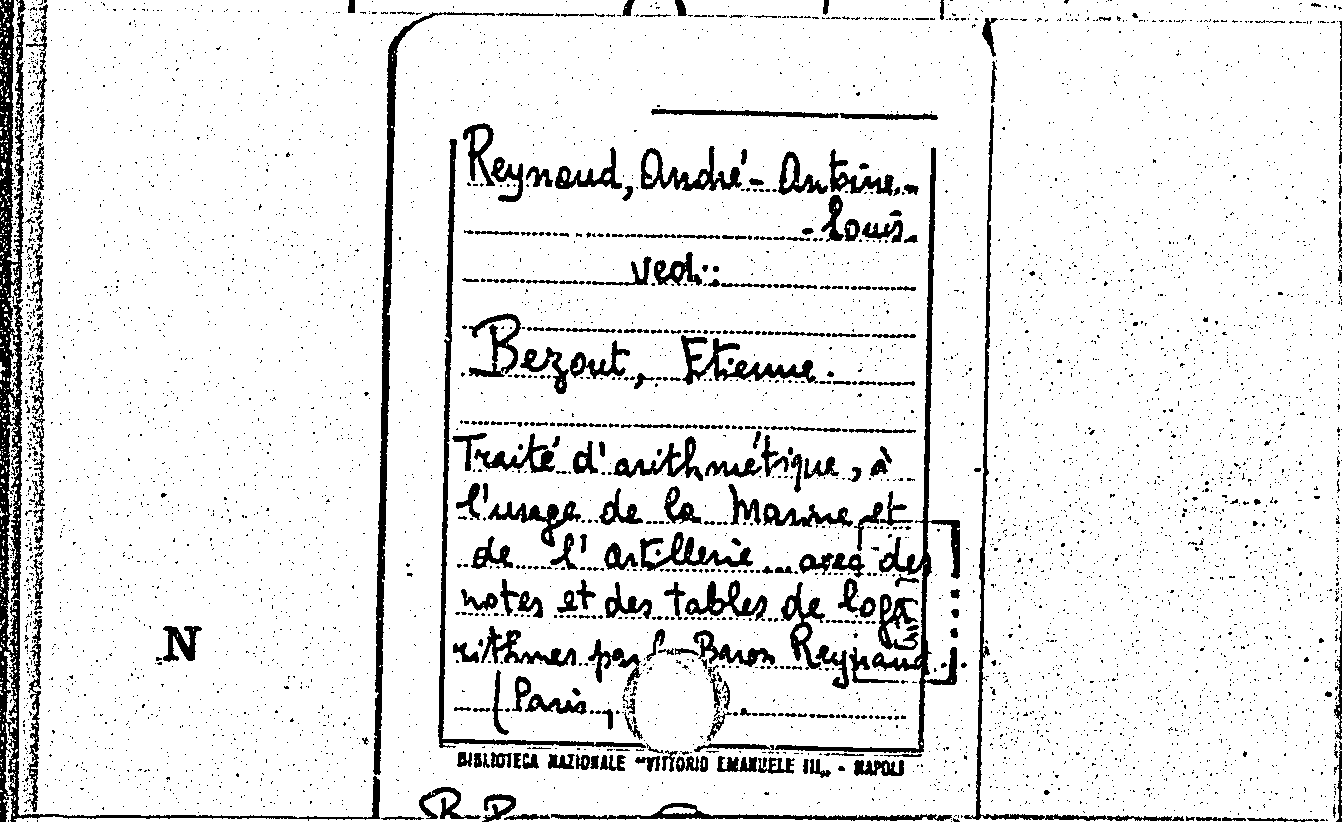 Reynaud, André-Antoine-
-Louis.
ved.:
Bezout, Etienne.
Traité d'arithmétique, à
l'usage de la Marine et
de l'artillerie... avec des
notes et des tables de loga
rithmes par le Baron Reynaud.
(Paris,
N
BIBLIOTECA NAZIONALE "VITTORIO EMANUELE III„ - NAPOLI